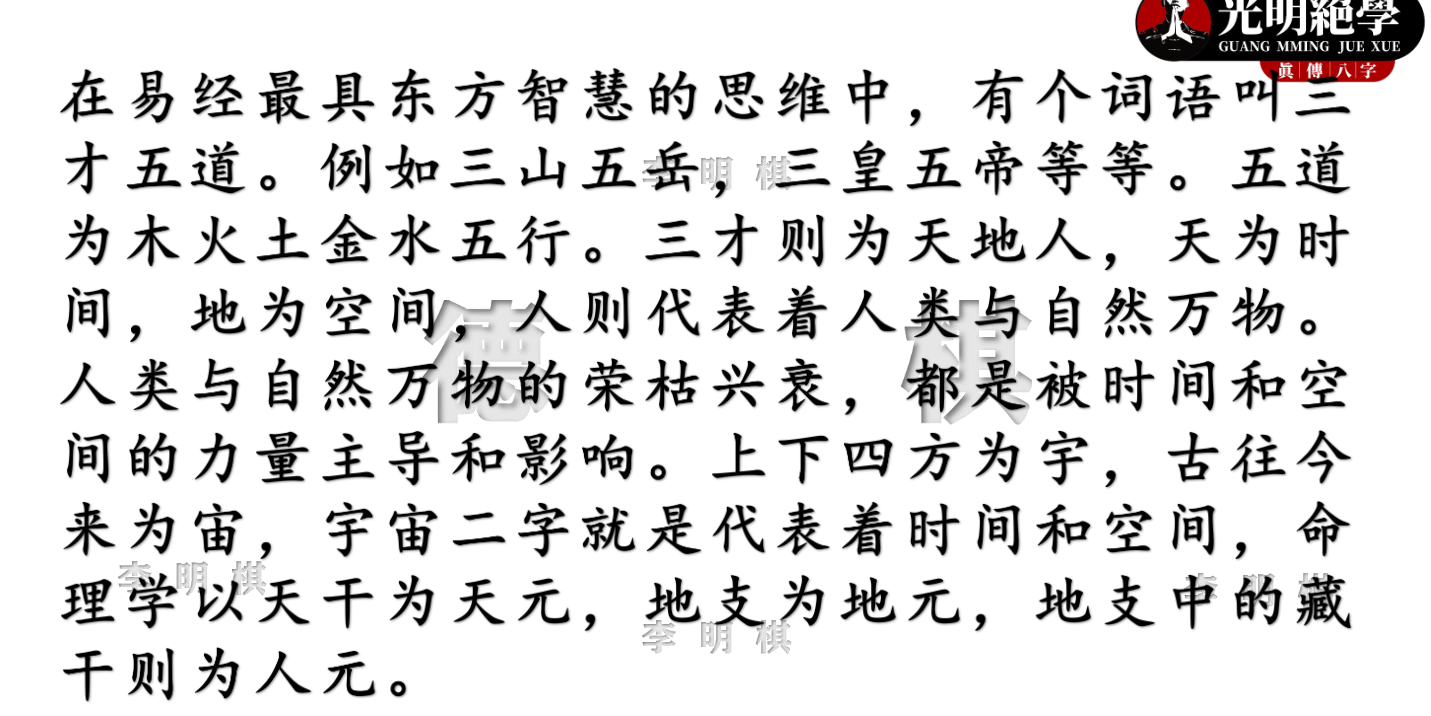 光明絕學
GUANG MMING JUE XUE
真傳八字
在易经最具东方智慧的思维中，有个词语叫三
才五道。例如三山五岳，三皇五帝等等。五道
为木火土金水五行。三才则为天地人，天为时
间，地为空间，人则代表着人类与自然万物。
人类与自然万物的荣枯兴衰，都是被时间和空
间的力量主导和影响。上下四方为宇，古往今
来为宙，宇宙二字就是代表着时间和空间，命
理学以天干为天元，地支为地元，地支中的藏
干则为人元。
李明棋
德 棋
李明棋
李明棋
李明棋